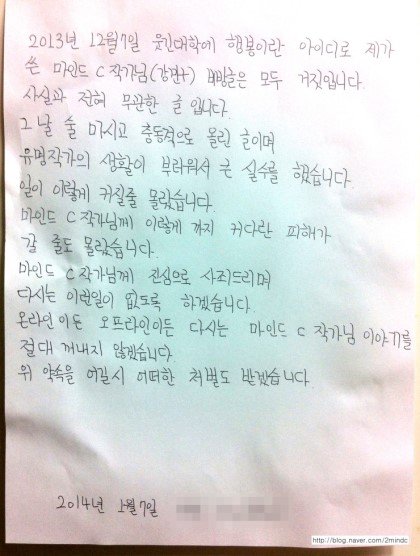 2013년 12월7일 웃긴대학에 행봉이란 아이디로 제가
쓴 마인드 C 작가님(강민구) 비방글은 모두 거짓입니다.
사실과 전혀 무관한 글 입니다.
그 날 술 마시고 충동적으로 올린 글이며
유명작가의 생활이 부러워서 큰 실수를 했습니다.
일이 이렇게 커질줄 몰랐습니다.
마인드 C 작가님께 이렇게 까지 커다란 피해가
갈 줄도 몰랐습니다.
마인드 C 작가님께 진심으로 사죄드리며
다시는 이런일이 없도록 하겠습니다.
온라인이든 오프라인이든 다시는 마인드 C 작가님 이야기를
절대 꺼내지 않겠습니다.
위 약속을 어길시 어떠한 처벌도 받겠습니다.
2014년 1월7일
http://blog.naver.com/2mindc